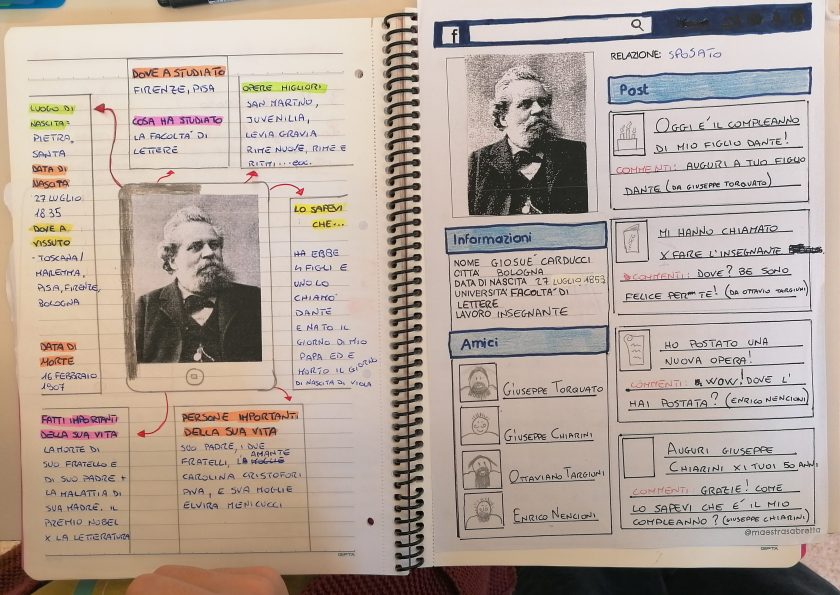 DOVE A STUDIATO
FIRENZE, PISA
COSA HA STUDIATO
LA FACOLTA' DI
LETTERE
OPERE MIGLIORI
SAN MARTNO,
JUVENILIA,
LEVIA GRAVIA
RIME NUOVE, RIME E
RITMI... ecc.
LUOGO DI
NASCITA:
PIETRA,
SANTA
DATA DI
NASCITA
27 LUGLIO
1835
DOVE A
VISSUTO
- TOSCANA/
MAREMMA,
PISA, FIRENZE,
BOLOGNA
DATA DI
MORTE
16 FEBBRAIO
1907
LO SAPEVI
CHE...
HA EBBE
4 FIGLI E
UNO LO
CHIAMÒ
DANTE
E NATO IL
GIORNO DI MIO
PAPA ED E
MORTO IL GIORNO
DI NASCITA DI VIOLA
FATTI IMPORTANTI
DELLA SUA VITA
LA MORTE DI
SUO FRATELLO E
DI SUO PADRE +
LA MALATTIA DI
SUA MADRE. IL
PREMIO NOBEL
X LA LETTERATURA
PERSONE IMPORTANTI
DELLA SUA VITA
SUO PADRE, I DUE
AMANTE
FRATELLI, LA MOGLIE
CAROLINA CRISTOFORI
PIVA, E SUA MOGLIE
ELVIRA MENICUCCI
f
RELAZIONE: SPOSATO
Informazioni
NOME GIOSUE' CARDUCCI
CITTÀ BOLOGNA
DATA DI NASCITA 27 LUGLIO 1853
UNIVERSITÀ FACOLTÀ DI
LETTERE
LAVORO INSEGNANTE
Amici
GIUSEPPE TORQUATO
GIUSEPPE CHIARINI
OTTAVIANO TARGIUNI
ENRICO NENCIONI
Post
OGGI E' IL COMPLEANNO
DI MIO FIGLIO DANTE!
COMMENTI: AUGURI A TUO FIGLIO
DANTE (DA GIUSEPPE TORQUATO)
MI HANNO CHIAMATO
X FARE L'INSEGNANTE
COMMENTI: DOVE? BE SONO
FELICE PER TE! (DA OTTAVIO TARGIUNI)
HO POSTATO UNA
NUOVA OPERA!
COMMENTI: WOW! DOVE L'
HAI POSTATA? (ENRICO NENCIONI)
AUGURI GIUSEPPE
CHIARINI X I TUOI 50 ANNI
COMMENTI: GRAZIE! COME
LO SAPEVI CHE E' IL MIO
COMPLEANNO? (GIUSEPPE CHIARINI)
@maestrasabretta